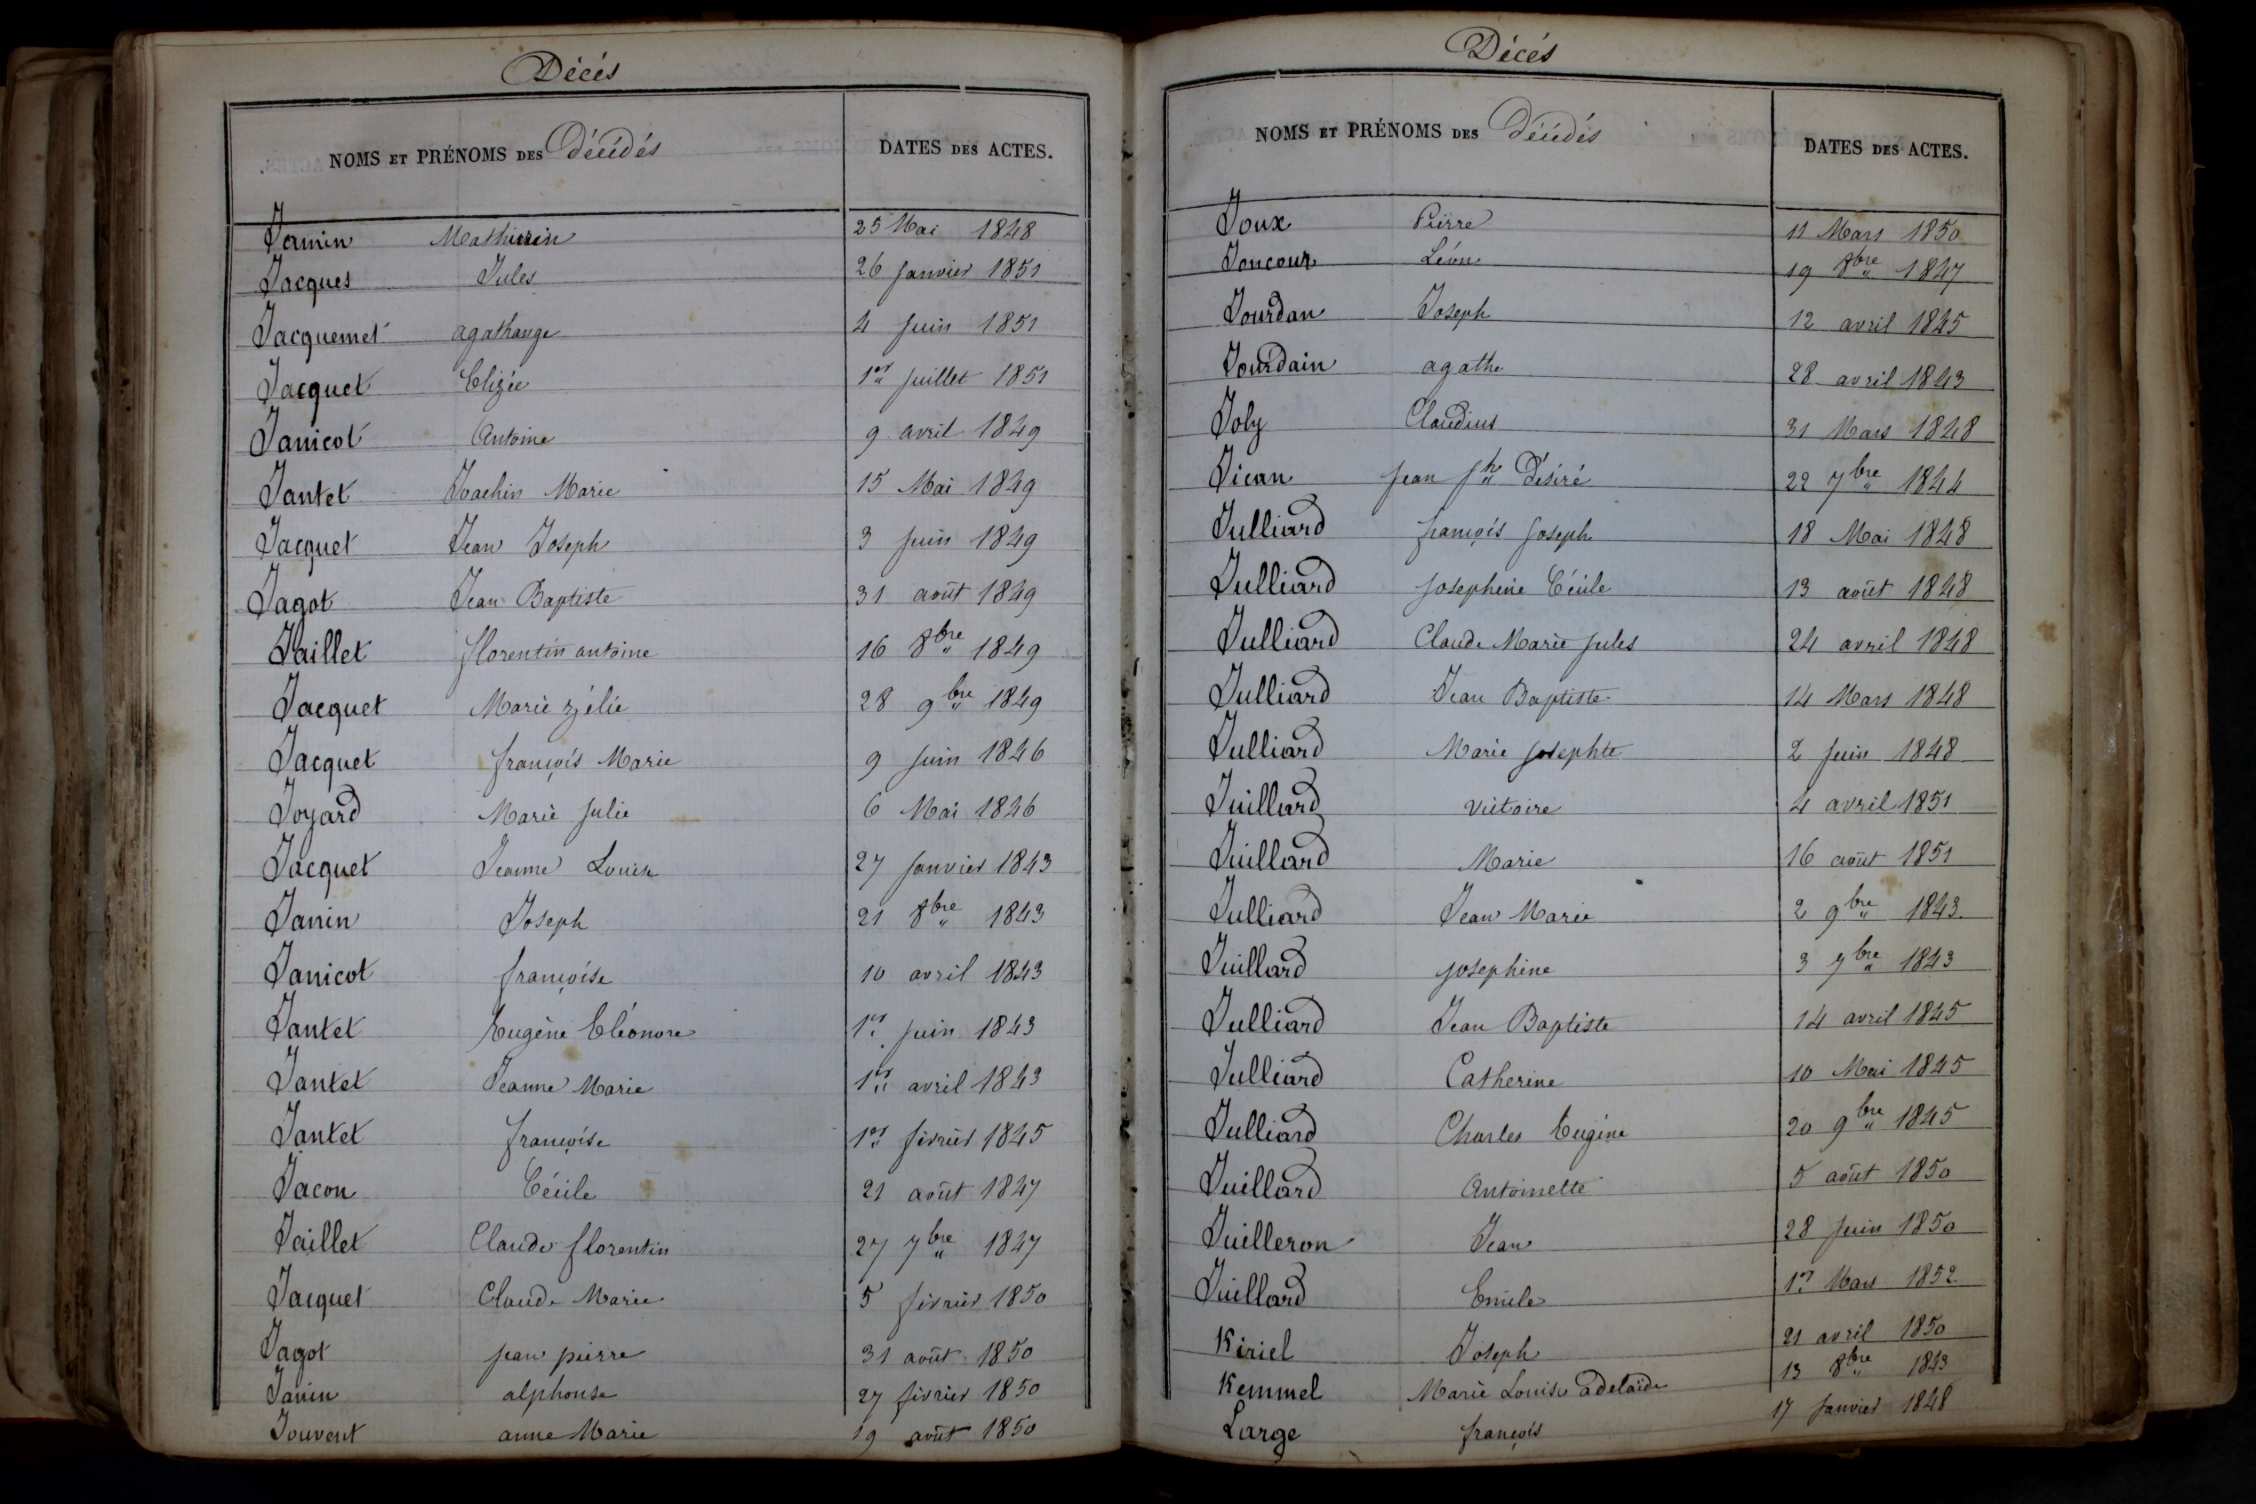 Décés
NOMS ET PRÉNOMS DES Décédés DATES DES ACTES.
Jamin Mathurin 25 Mai 1848
Jacques Jules 26 Janvier 1851
Jacquemet agathange 4 Juin 1851
Jacquet Elizée 1er Juillet 1851
Janicot Antoine 9 avril 1849
Jantet Joachin Marie 15 Mai 1849
Jacquet Jean Joseph 3 Juin 1849
Jagot Jean Baptiste 31 août 1849
Jaillet florentin antoine 16 8bre 1849
Jacquet Marie zélie 28 9bre 1849
Jacquet françois Marie 9 Juin 1846
Joyard Marie Julie 6 Mai 1846
Jacquet Jeanne Louise 27 Janvier 1843
Janin Joseph 21 8bre 1843
Janicot françoise 10 avril 1843
Jantet Eugène Eléonore 1er Juin 1843
Jantet Jeanne Marie 1er avril 1843
Jantet françoise 1er février 1845
Jacon Cécile 21 août 1847
Jaillet Claude florentin 27 7bre 1847
Jacquet Claude Marie 5 février 1850
Jagot jean pierre 31 août 1850
Janin alphonse 27 février 1850
Jouvent anne Marie 19 août 1850
Décés
NOMS ET PRÉNOMS DES Décédés DATES DES ACTES.
Joux Pierre 11 Mars 1850
Joncour Léon 19 8bre 1847
Jourdan Joseph 12 avril 1845
Jourdain agathe 28 avril 1843
Joly Claudius 31 Mars 1848
Jican Jean Jh Désiré 22 7bre 1844
Julliard françois Joseph 18 Mai 1848
Julliard Josephine Cécile 13 août 1848
Julliard Claude Marie Jules 24 avril 1848
Julliard Jean Baptiste 14 Mars 1848
Julliard Marie Josephte 2 Juin 1848
Juillard victoire 4 avril 1851
Juillard Marie 16 août 1851
Julliard Jean Marie 2 9bre 1843
Juillard josephine 3 7bre 1843
Julliard Jean Baptiste 14 avril 1845
Julliard Catherine 10 Mai 1845
Julliard Charles Eugène 20 9bre 1845
Juillard Antoinette 5 août 1850
Juilleron Jean 28 Juin 1850
Juillard Emile 1er Mars 1852
Kiriel Joseph 21 avril 1850
Kemmel Marie Louise adelaïde 13 8bre 1843
Large françois 17 Janvier 1848